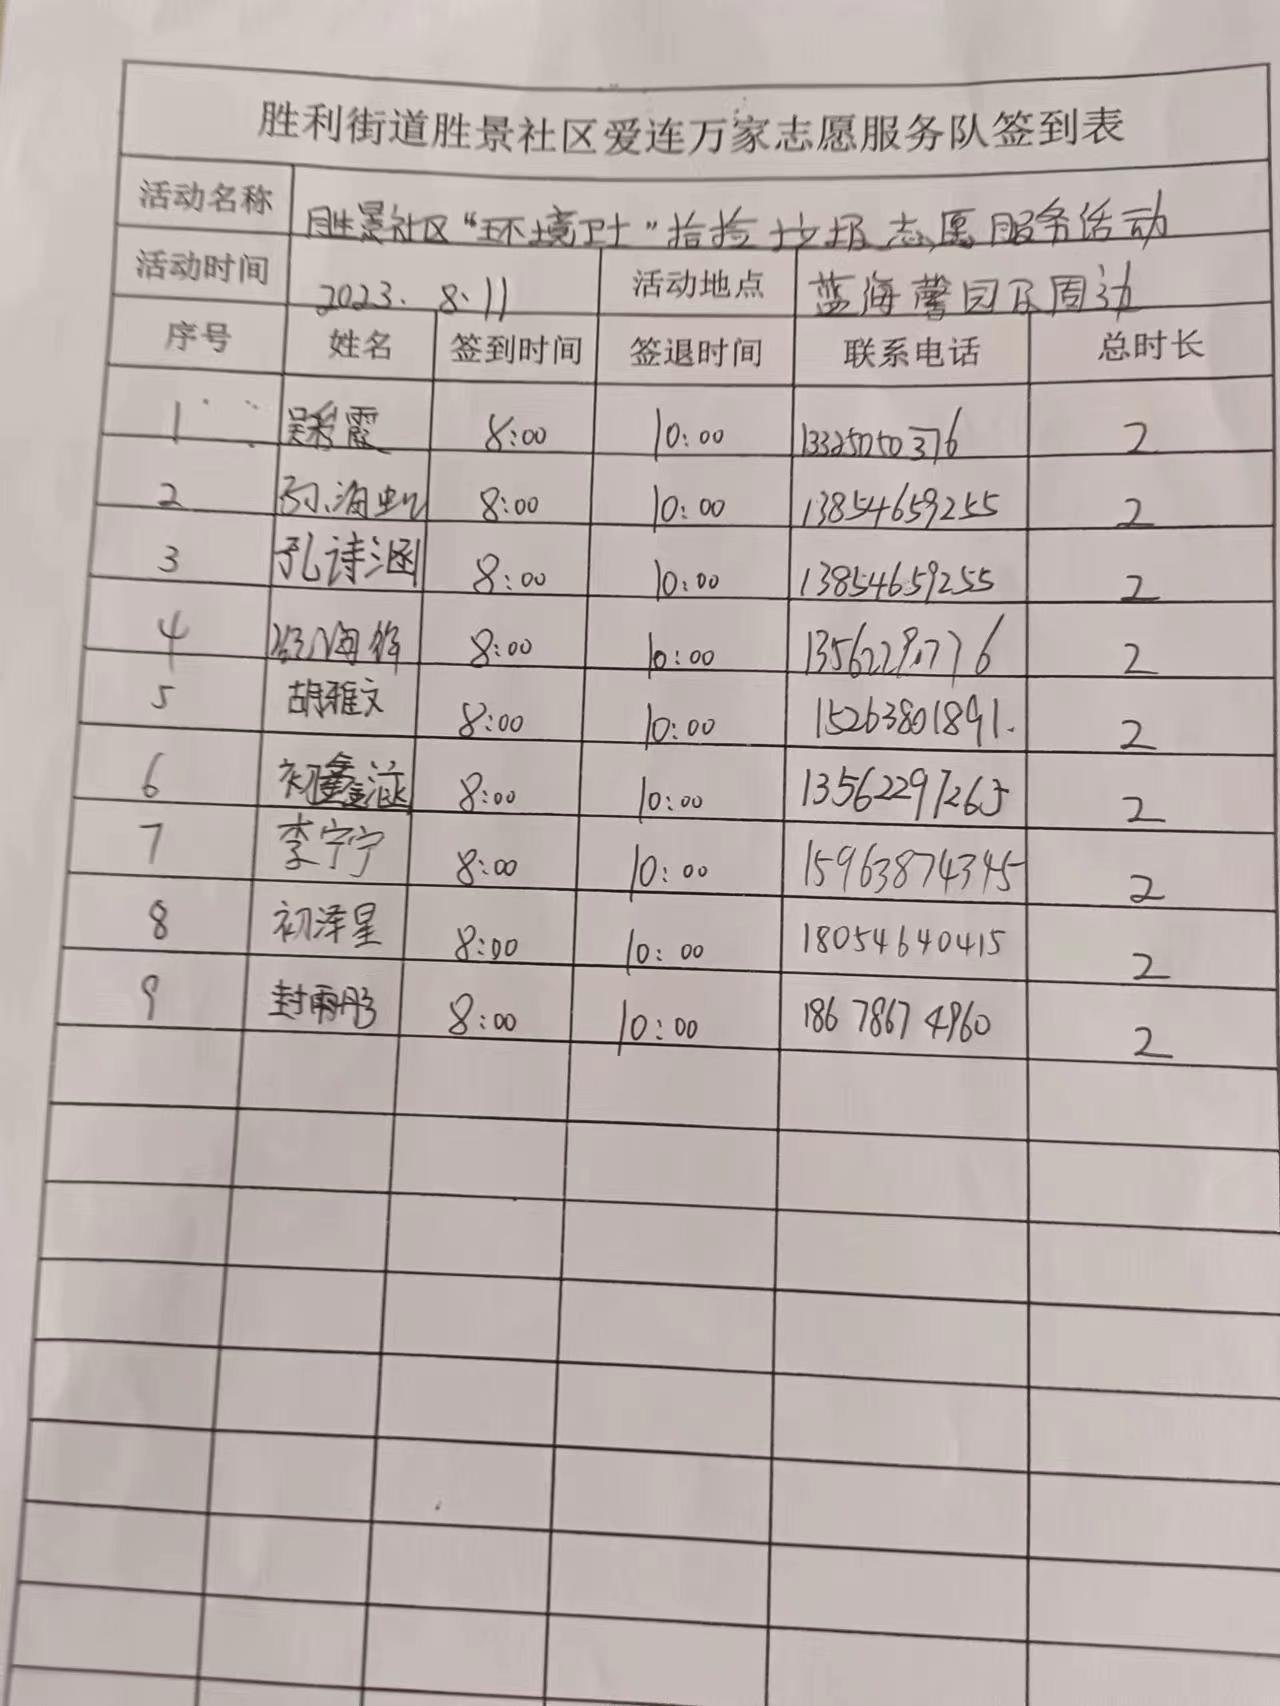 胜利街道胜景社区爱连万家志愿服务队签到表
活动名称 胜景社区“环境卫士”捡抄报志愿服务活动
活动时间 2023.8.11 活动地点 蓝海馨园及周边
序号 姓名 签到时间 签退时间 联系电话 总时长
1 霞 8:00 10:00 2
2 海虹 8:00 10:00 13854659255 2
3 孔诗涵 8:00 10:00 13854659255 2
4 海 8:00 10:00 2
5 胡雅文 8:00 10:00 15263801891. 2
6 初鑫涵 8:00 10:00 13562297265 2
7 李宁宁 8:00 10:00 15963874345 2
8 初泽星 8:00 10:00 18054640415 2
9 封雨彤 8:00 10:00 186 7867 4960 2